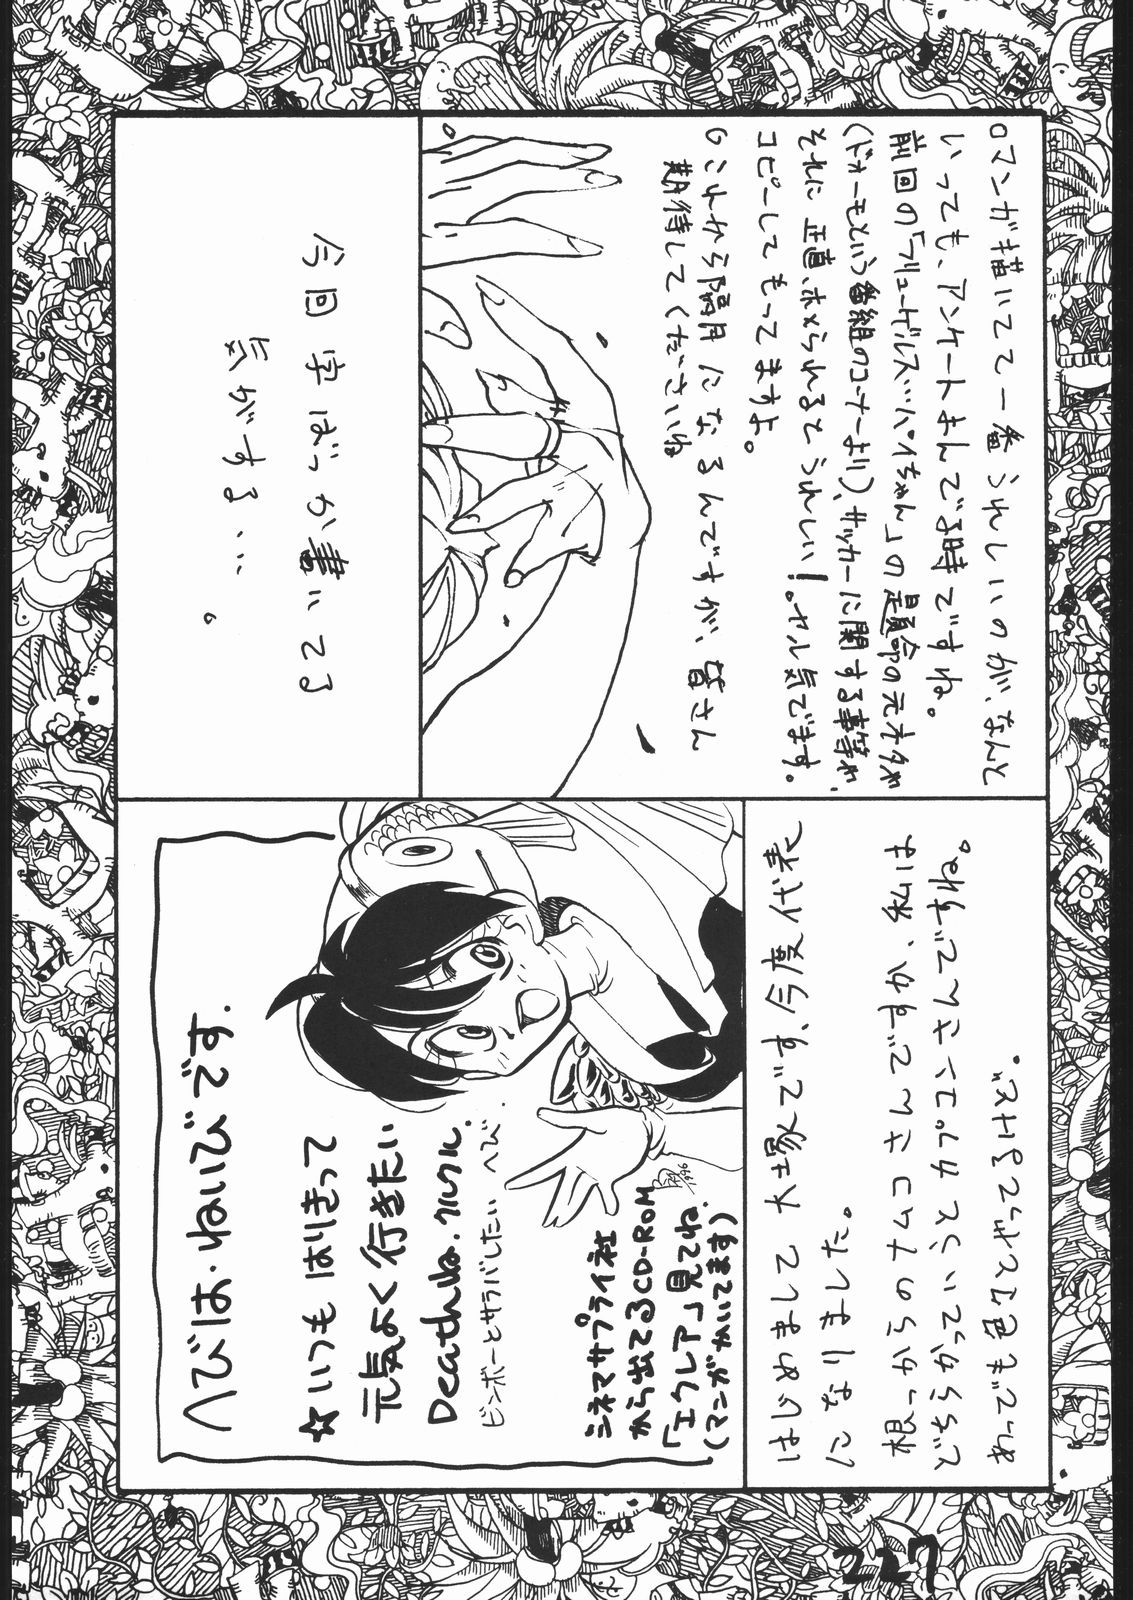 □マンガ描いてて一番うれしいのが、なんと
いっても、アンケートよんでる時ですね。
前回の「フリューゲルス…パイちゃん」の是命の元ネタが
(ドォーモという番組のコーナーより)、サッカーに関する事等が、
それに正直、ホメられるとうれしい!。ヤル気でます。
コピーしてもってますよ。
これから隔月になるんですが、皆さん
期待してくださいね
今回字ばっか書いてる
気がする…。
はじめまして大塚です、今度代表
になりました。
根っからのナムコさんですか、私は
あれでも色々スゲっスよ。
へびは・ねいびです.
☆いつもはりきって
元気よく行きたい
ビンボーとサラバしたいへび.
シネマサプライ社
から出てるCD-ROM
「エクレア」見てね.
(マンガかいてます)
1996
227